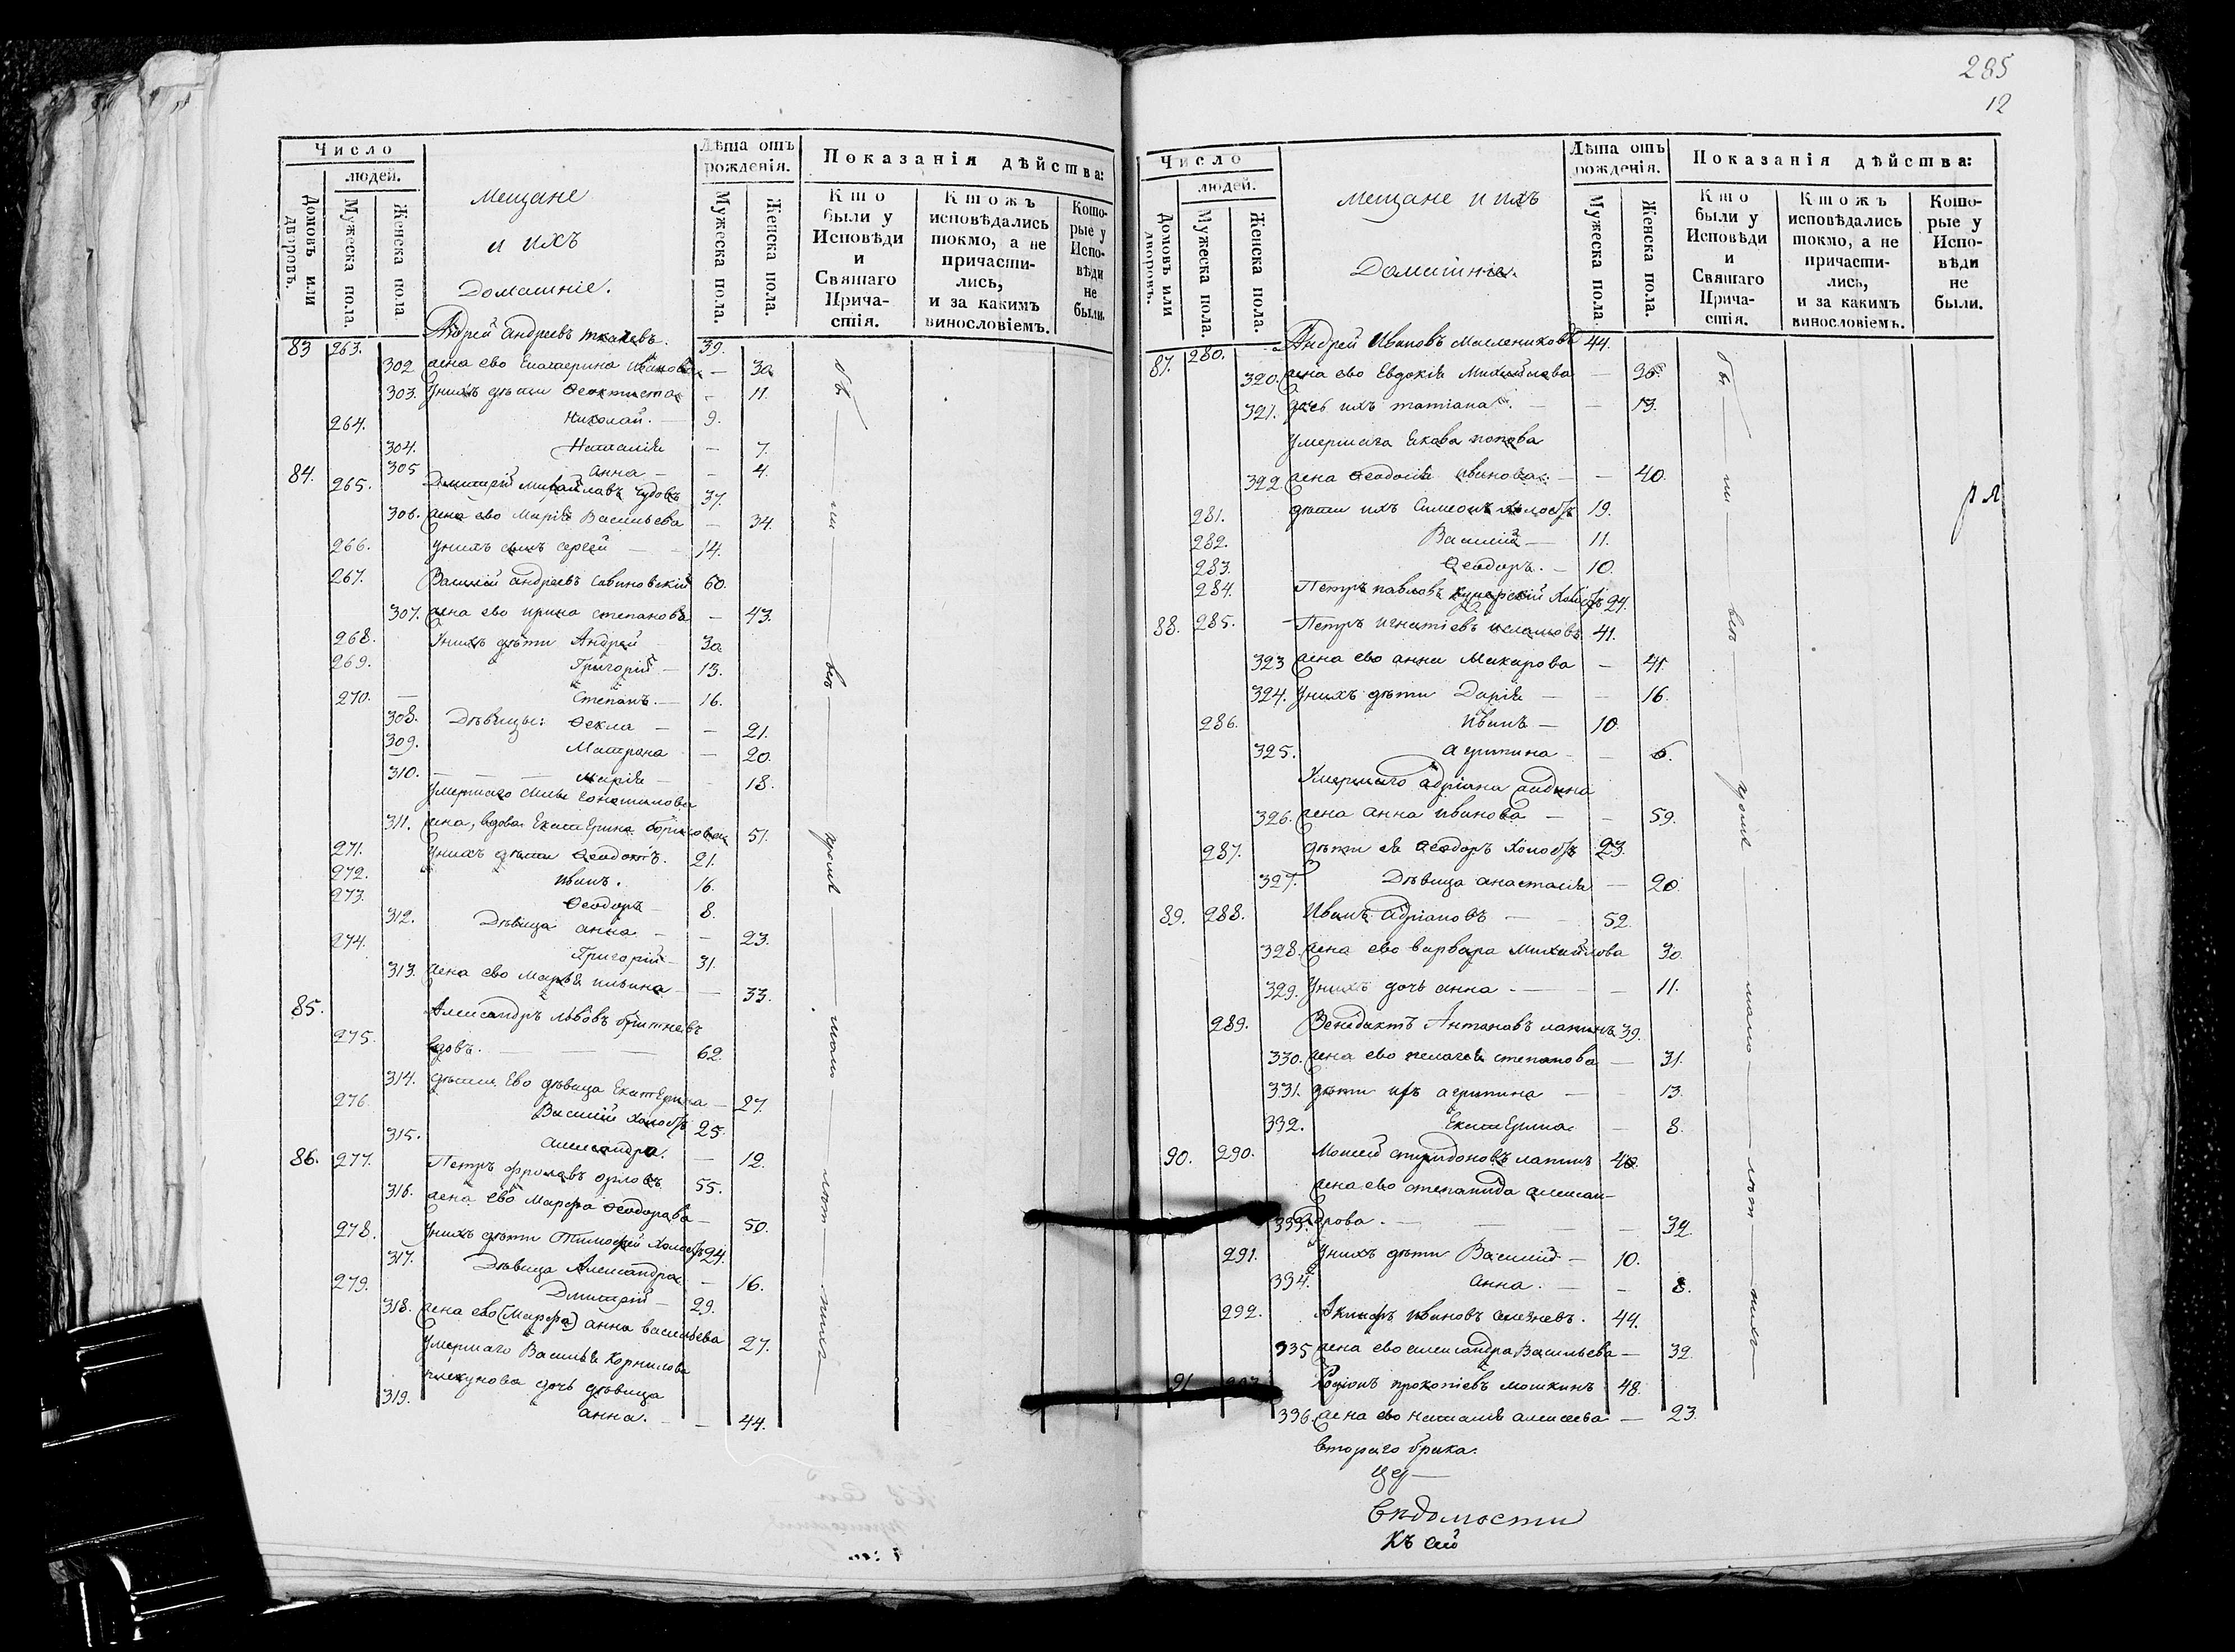 285
12
Число
людей.
Домовъ или дворовъ.
Мужеска пола.
Женска пола
Мещане
и ихъ
Домашніе.
Лѣта отъ рожденія.
Мужеска пола.
Женска пола.
Показанія дѣйства:
Кто были у Исповѣди и Святаго Причастія.
Ктожъ исповѣдались токмо, а не причастились, и за какимъ винословіемъ.
Которые у Исповѣди не были.
83 263. Андрей Андреевъ 39.
302 жена ево Екатерина Иванова — 30
303. Унихъ дѣти Ѳеоктиста - 11.
264. Николай. — 9.
304. Наталія — 7.
305 Анна — - 4.
84. 265. Димитрій Михайлавъ Чудовъ 37.
306. жена ево Марія Васильева — 34.
266. Унихъ сынъ Сергей — - 14.
267. Василій Андреевъ Савиновскій 60.
307. жена ево Ирина Степанова - 43.
268. Унихъ дѣти Андрей 30
269. Григорій — 13.
270. — Степанъ. — 16.
308. Дѣвицы: Ѳекла — - 21.
309. Матрона — 20.
310. — — — Марія — - 18.
умершаго
311. жена, вдова Екатерина 51.
271. Унихъ дѣти Ѳеодотъ. 21.
272. Иванъ. 16.
273. Ѳеодоръ — 8.
312. Дѣвица Анна — - 23.
274. Григорій — 31.
313. жена ево Марья Ильина — 33.
85. Александръ Львовъ
275. вдовъ. — — — 62.
314. дѣти Ево дѣвица Екатерина — 27.
276 Василій Холостъ 25.
315. Александра. — 12.
86. 277. Петръ Фролавъ Орловъ 55.
316. жена ево Марфа Ѳеодорава — 50.
278. Унихъ дѣти Тимофей Холостъ 24.
317. Дѣвица Александра — 16.
279. Дмитрій — 29.
318. жена ево (Марфа) Анна Васильева 27.
умершаго Василья Корнилова
дочь дѣвица
319. Анна. — - 44.
Число
людей.
Домовъ или дворовъ.
Мужеска пола.
Женска пола.
Мещане и ихъ
Домашніе.
Лѣта отъ рожденія.
Мужеска пола.
Женска пола.
Показанія дѣйства:
Кто были у Исповѣди и Святаго Причастія.
Ктожъ исповѣдались токмо, а не причастились, и за какимъ винословіемъ.
Которые у Исповѣди не были.
87. 280. Андрей Ивановъ Маслениковъ 44.
320. жена ево Евдокія Михайлова —
321. дочь ихъ Татіана. — - 13.
умершаго Екова Попова
322 жена Ѳеодосія Иванова. — - 40.
281. дѣти ихъ Симеонъ Холостъ 19.
282. Василій — 11.
283. Ѳеодоръ. — 10.
284. Петръ Павловъ Холостъ 24.
88. 285. Петръ Игнатіевъ 41.
323 жена ево Анна Макарова — 41.
324. Унихъ дѣти Дарія — - 16.
286. Иванъ — 10.
325. Агрипина — - 6.
Умершаго Адріана
326. жена Анна Иванова — - 59.
287. дѣти ея Ѳеодоръ Холостъ 23.
327. Дѣвица Анастасія — 20.
89. 288. Иванъ Адріановъ — 52.
328. жена ево Варвара Михайлова 30.
329. Унихъ дочь Анна — - 11.
289. Венедиктъ Антоновъ Лапинъ 39.
330. жена ево Пелагея Степанова — 31.
331. дѣти ихъ Агрипина — - 13.
332. Екатерина — 8.
90. 290. Моисей Спиридоновъ Лапинъ 40.
жена ево Степанида Алексан-
333. дрова. — — — 32.
291. Унихъ дѣти Василій — 10.
334. Анна. — - 8.
292. Ивановъ 44.
335 жена ево Александра Васильева — 39.
91. Родіонъ Прокопіевъ Мошкинъ 48.
336. жена ево Наталія Алексеева — 23.
втораго брака.
Вѣдомости
Къ сей